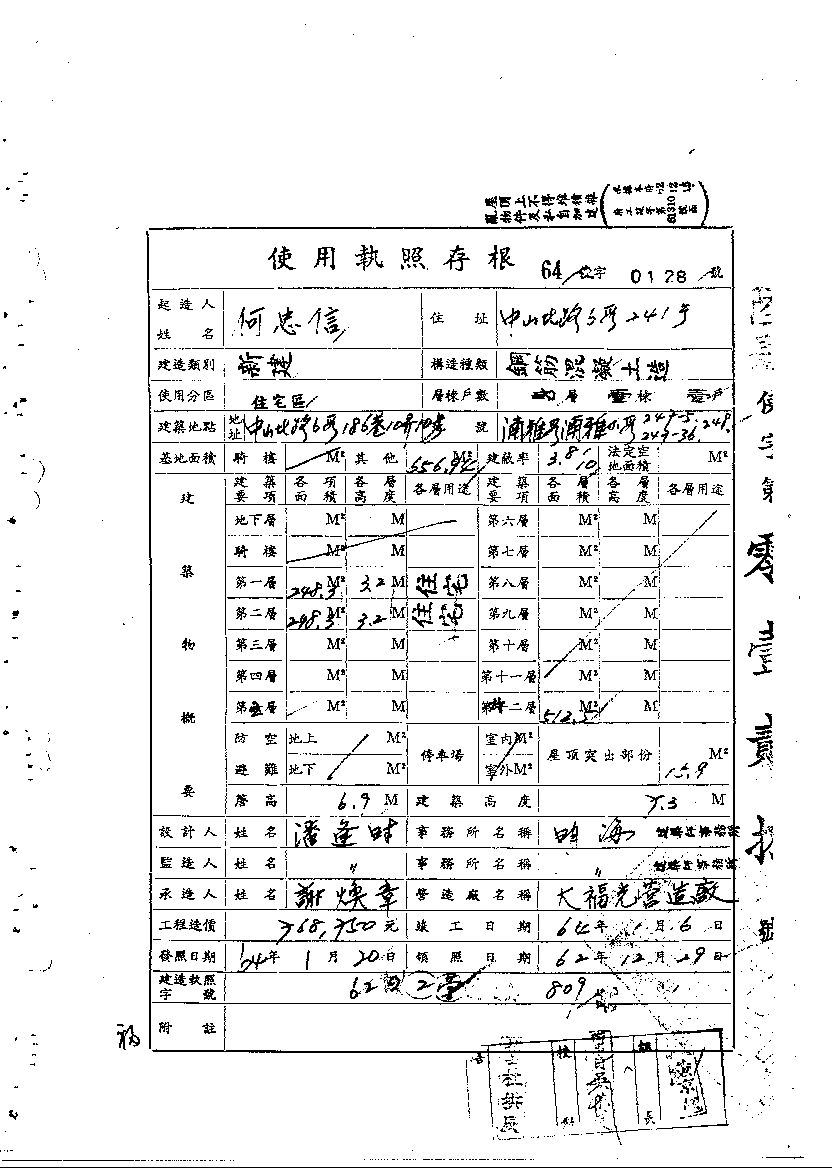 屋頂上不得堆積雜
物件及私自加建
使用執照存根 64 使字 0128 號
起造人姓名 何忠信 住址 中山北路6段241號
建造類別 新建 構造種類 鋼筋混凝土造
使用分區 住宅區 層棟戶數 層 棟 戶
建築地點 地址 中山北路6段186巷10弄10 號 湳雅段湳雅小段 247-5, 249, 249-36
基地面積 騎樓 M² 其他 656.92 M² 建蔽率 3.8/10 法定空地面積 M²
建築物概要 建築要項 各項面積 各層高度 各層用途 建築要項 各層面積 各層高度 各層用途
地下層 M² M 第六層 M² M
騎樓 M² M 第七層 M² M
第一層 248.3 M² 3.2 M 住宅 第八層 M² M
第二層 248.3 M² 3.2 M 住宅 第九層 M² M
第三層 M² M 第十層 M² M
第四層 M² M 第十一層 M² M
第五層 M² M 第十二層 512.5 M² M
防空避難 地上 M² 停車場 室內 M² 屋頂突出部份 15.9 M²
地下 M² 室外 M²
簷高 6.9 M 建築高度 7.3 M
設計人 姓名 潘逢時 事務所名稱 時海 建築師事務所
監造人 姓名 〃 事務所名稱 〃 建築師事務所
承造人 姓名 謝煥章 營造廠名稱 大福光營造廠
工程造價 768,750 元 竣工日期 64年 1月 6日
發照日期 64年 1月 20日 領照日期 62年 12月 29日
建造執照字號 62 809
附註
使字第零壹貳捌號